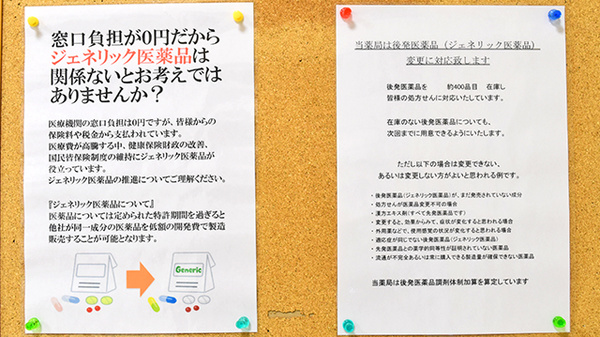 窓口負担が0円だから
ジェネリック医薬品は
関係ないとお考えでは
ありませんか？
医療機関の窓口負担は0円ですが、皆様からの
保険料や税金から支払われています。
医療費が高騰する中、健康保険財政の改善、
国民皆保険制度の維持にジェネリック医薬品が
役立っています。
ジェネリック医薬品の推進についてご理解ください。
『ジェネリック医薬品について』
医薬品については定められた特許期間を過ぎると
他社が同一成分の医薬品を低額の開発費で製造
販売することが可能となります。
Generic
当薬局は後発医薬品（ジェネリック医薬品）
変更に対応致します
後発医薬品を　約400品目　在庫し
皆様の処方せんに対応いたしています。
在庫のない後発医薬品についても、
次回までに用意できるようにいたします。
ただし以下の場合は変更できない、
あるいは変更しない方がよいと思われる例です。
・後発医薬品（ジェネリック医薬品）が、まだ発売されていない成分
・処方せんが医薬品変更不可の場合
・漢方エキス剤（すべて先発医薬品です）
・変更すると、効果からみて、症状が変化すると思われる場合
・外用薬などで、使用感覚の状況が変化すると思われる場合
・適応症が同じでない後発医薬品（ジェネリック医薬品）
・先発医薬品との薬学的同等性が証明されていない医薬品
・流通が不完全あるいは常に購入できる製造量が確保できない医薬品
当薬局は後発医薬品調剤体制加算を算定しています